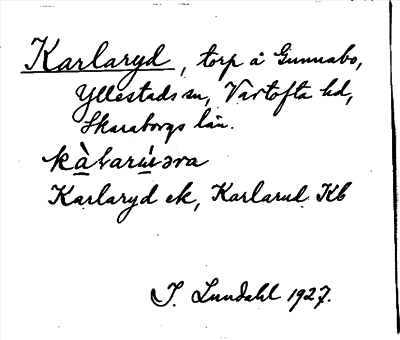 Karlaryd, torp å Gunnabo,
Yllestads sn, Vartofta hd,
Skaraborgs län.
Karlaryd ek, Karlarud Kb
I. Lundahl 1927.